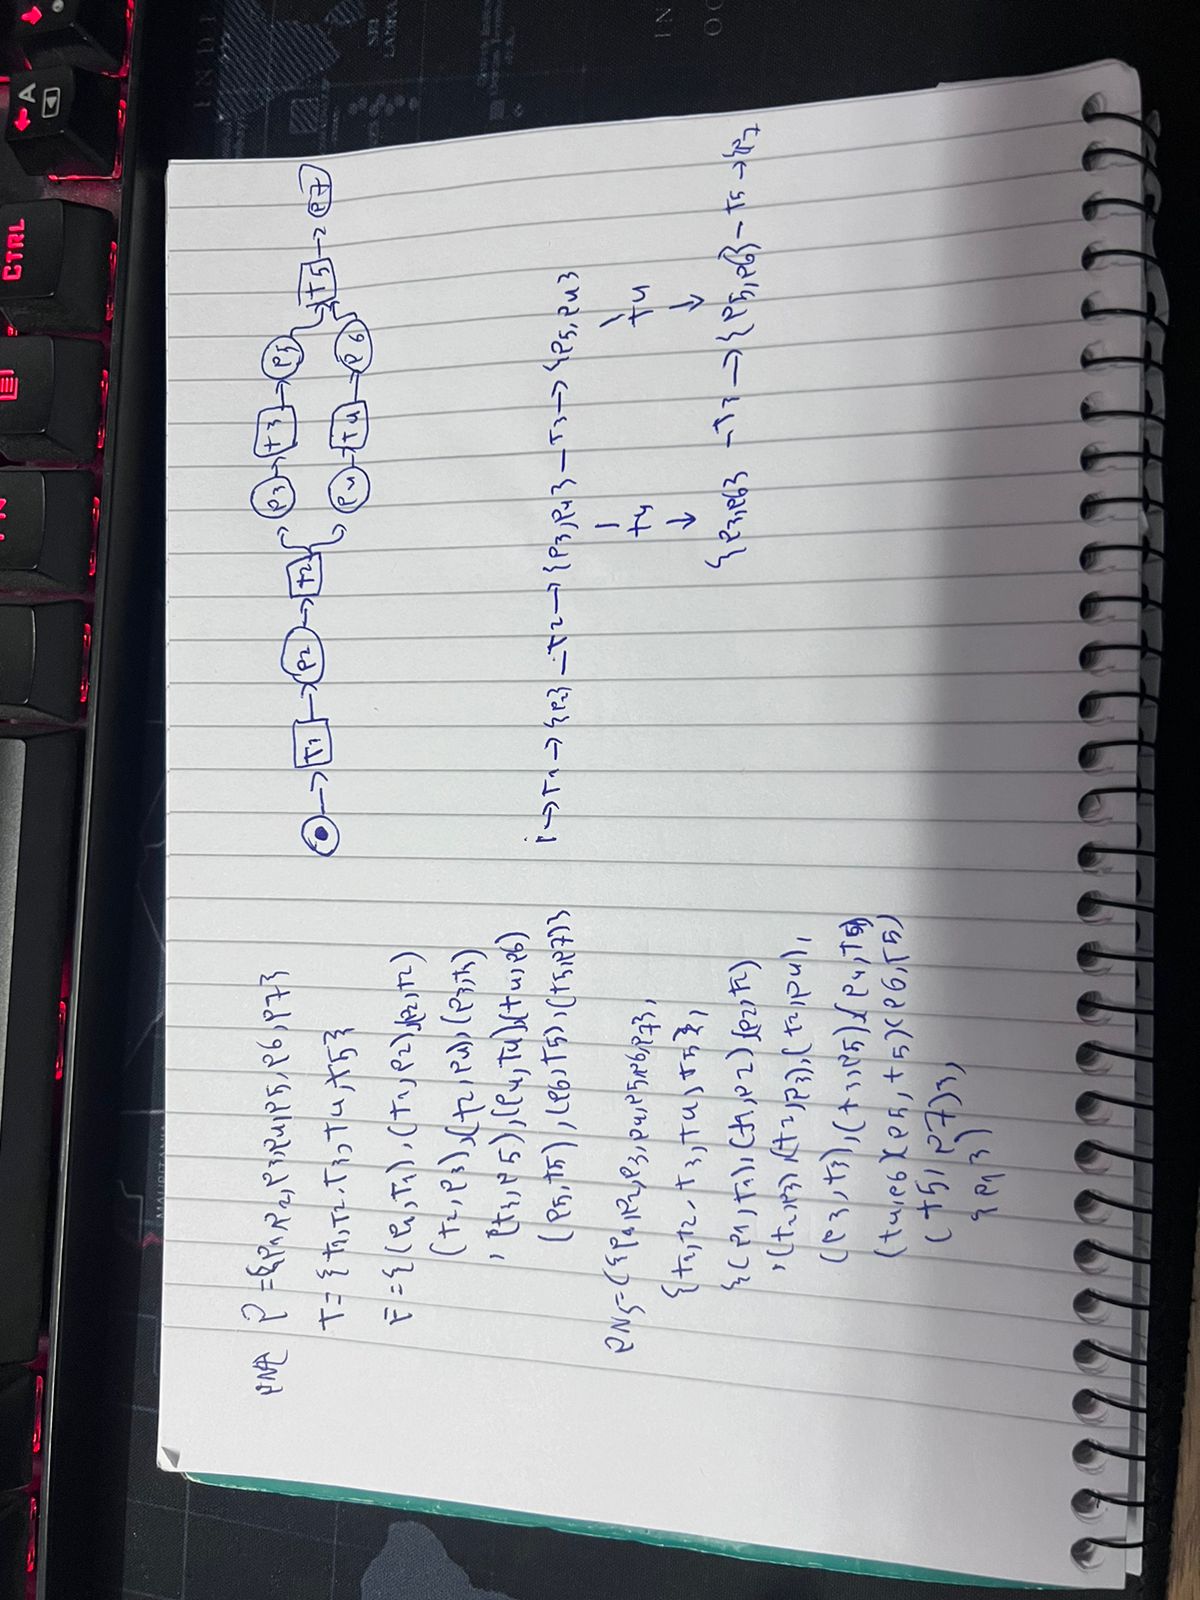 CTRL
A
MAURITANIA
INDI
P = {p1, p2, p3, p4, p5, p6, p7}
T = {t1, t2, t3, t4, t5}
F = {(p1, t1), (t1, p2), (p2, t2)
(t2, p3), (t2, p4), (p3, t3)
, (t3, p5), (p4, t4), (t4, p6)
(p5, t5), (p6, t5), (t5, p7)}
PN5 = ({p1, p2, p3, p4, p5, p6, p7},
{t1, t2, t3, t4, t5},
{(p1, t1), (t1, p2), (p2, t2)
, (t2, p3), (t2, p3), (t2, p4),
(p3, t3), (t3, p5), (p4, t5)
(t4, p6)(p5, t5)(p6, t5)
(t5, p7)},
{p1})
t1 p2 t2 p3 t3 p5 t5 p7
p4 t4 p6
i → t1 → {p2} — t2 → {p3, p4} — t3 → {p5, p4}
t4 t4
{p3, p6} — t3 → {p5, p6} — t5 → {p7